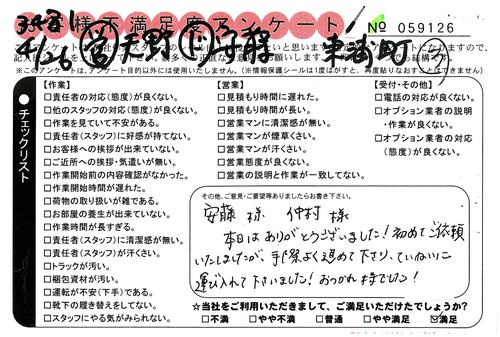 お客様不満足度アンケート
№ 059126
4/26
※このアンケートは、アンケート目的以外には使用いたしません。(※情報保護シールは1度はがすと、再度貼りなおすことはできません)
チェックリスト
【作業】
□責任者の対応(態度)が良くない。
□他のスタッフの対応(態度)が良くない。
□作業を見ていて不安がある。
□責任者(スタッフ)に好感が持てない。
□お客様への挨拶が出来ていない。
□ご近所への挨拶・気遣いが無い。
□作業開始前の内容確認がなかった。
□作業開始時間が遅れた。
□荷物の取り扱いが雑である。
□お部屋の養生が出来ていない。
□作業時間が長すぎる。
□責任者(スタッフ)に清潔感が無い。
□責任者(スタッフ)が汗くさい。
□トラックが汚い。
□梱包資材が汚い。
□運転が不安(下手)である。
□靴下の履き替えをしてない。
□スタッフにやる気がみられない。
【営業】
□見積もり時間に遅れた。
□見積もり時間が長い。
□営業マンに清潔感が無い。
□営業マンが煙草くさい。
□営業マンが汗くさい。
□営業態度が良くない。
□営業の説明と作業が一致してない。
【受付・その他】
□電話の対応が良くない。
□オプション業者の説明
・作業が良くない。
□オプション業者の対応
(態度)が良くない。
その他、ご意見・ご要望等ありましたらお書き下さい。
安藤様 仲村様
本日はありがとうございました!初めてご依頼
いたしましたが、手際よく進めて下さり、ていねいに
運び入れて下さいました!おつかれ様でした!
☆当社をご利用いただきまして、ご満足いただけたでしょうか?
□不満 □やや不満 □普通 □やや満足 ☑満足